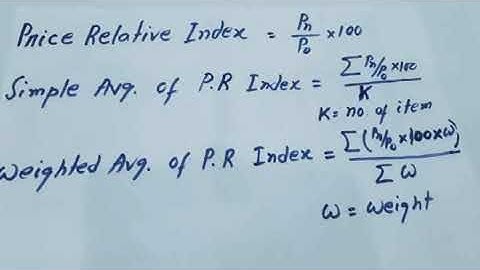 Price Relative Index = Pn/Po ×100
Simple Avg. of P.R Index = Σ Pn/Po ×100 / K
K = no. of item
Weighted Avg. of P.R Index = Σ(Pn/Po ×100×ω) / Σ ω
ω = weight